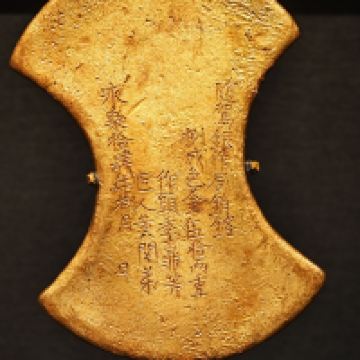 隨駕銀作局銷鎔
捌成色金伍拾兩重
作頭季等
匠人關弟
永樂拾肆年捌月 日